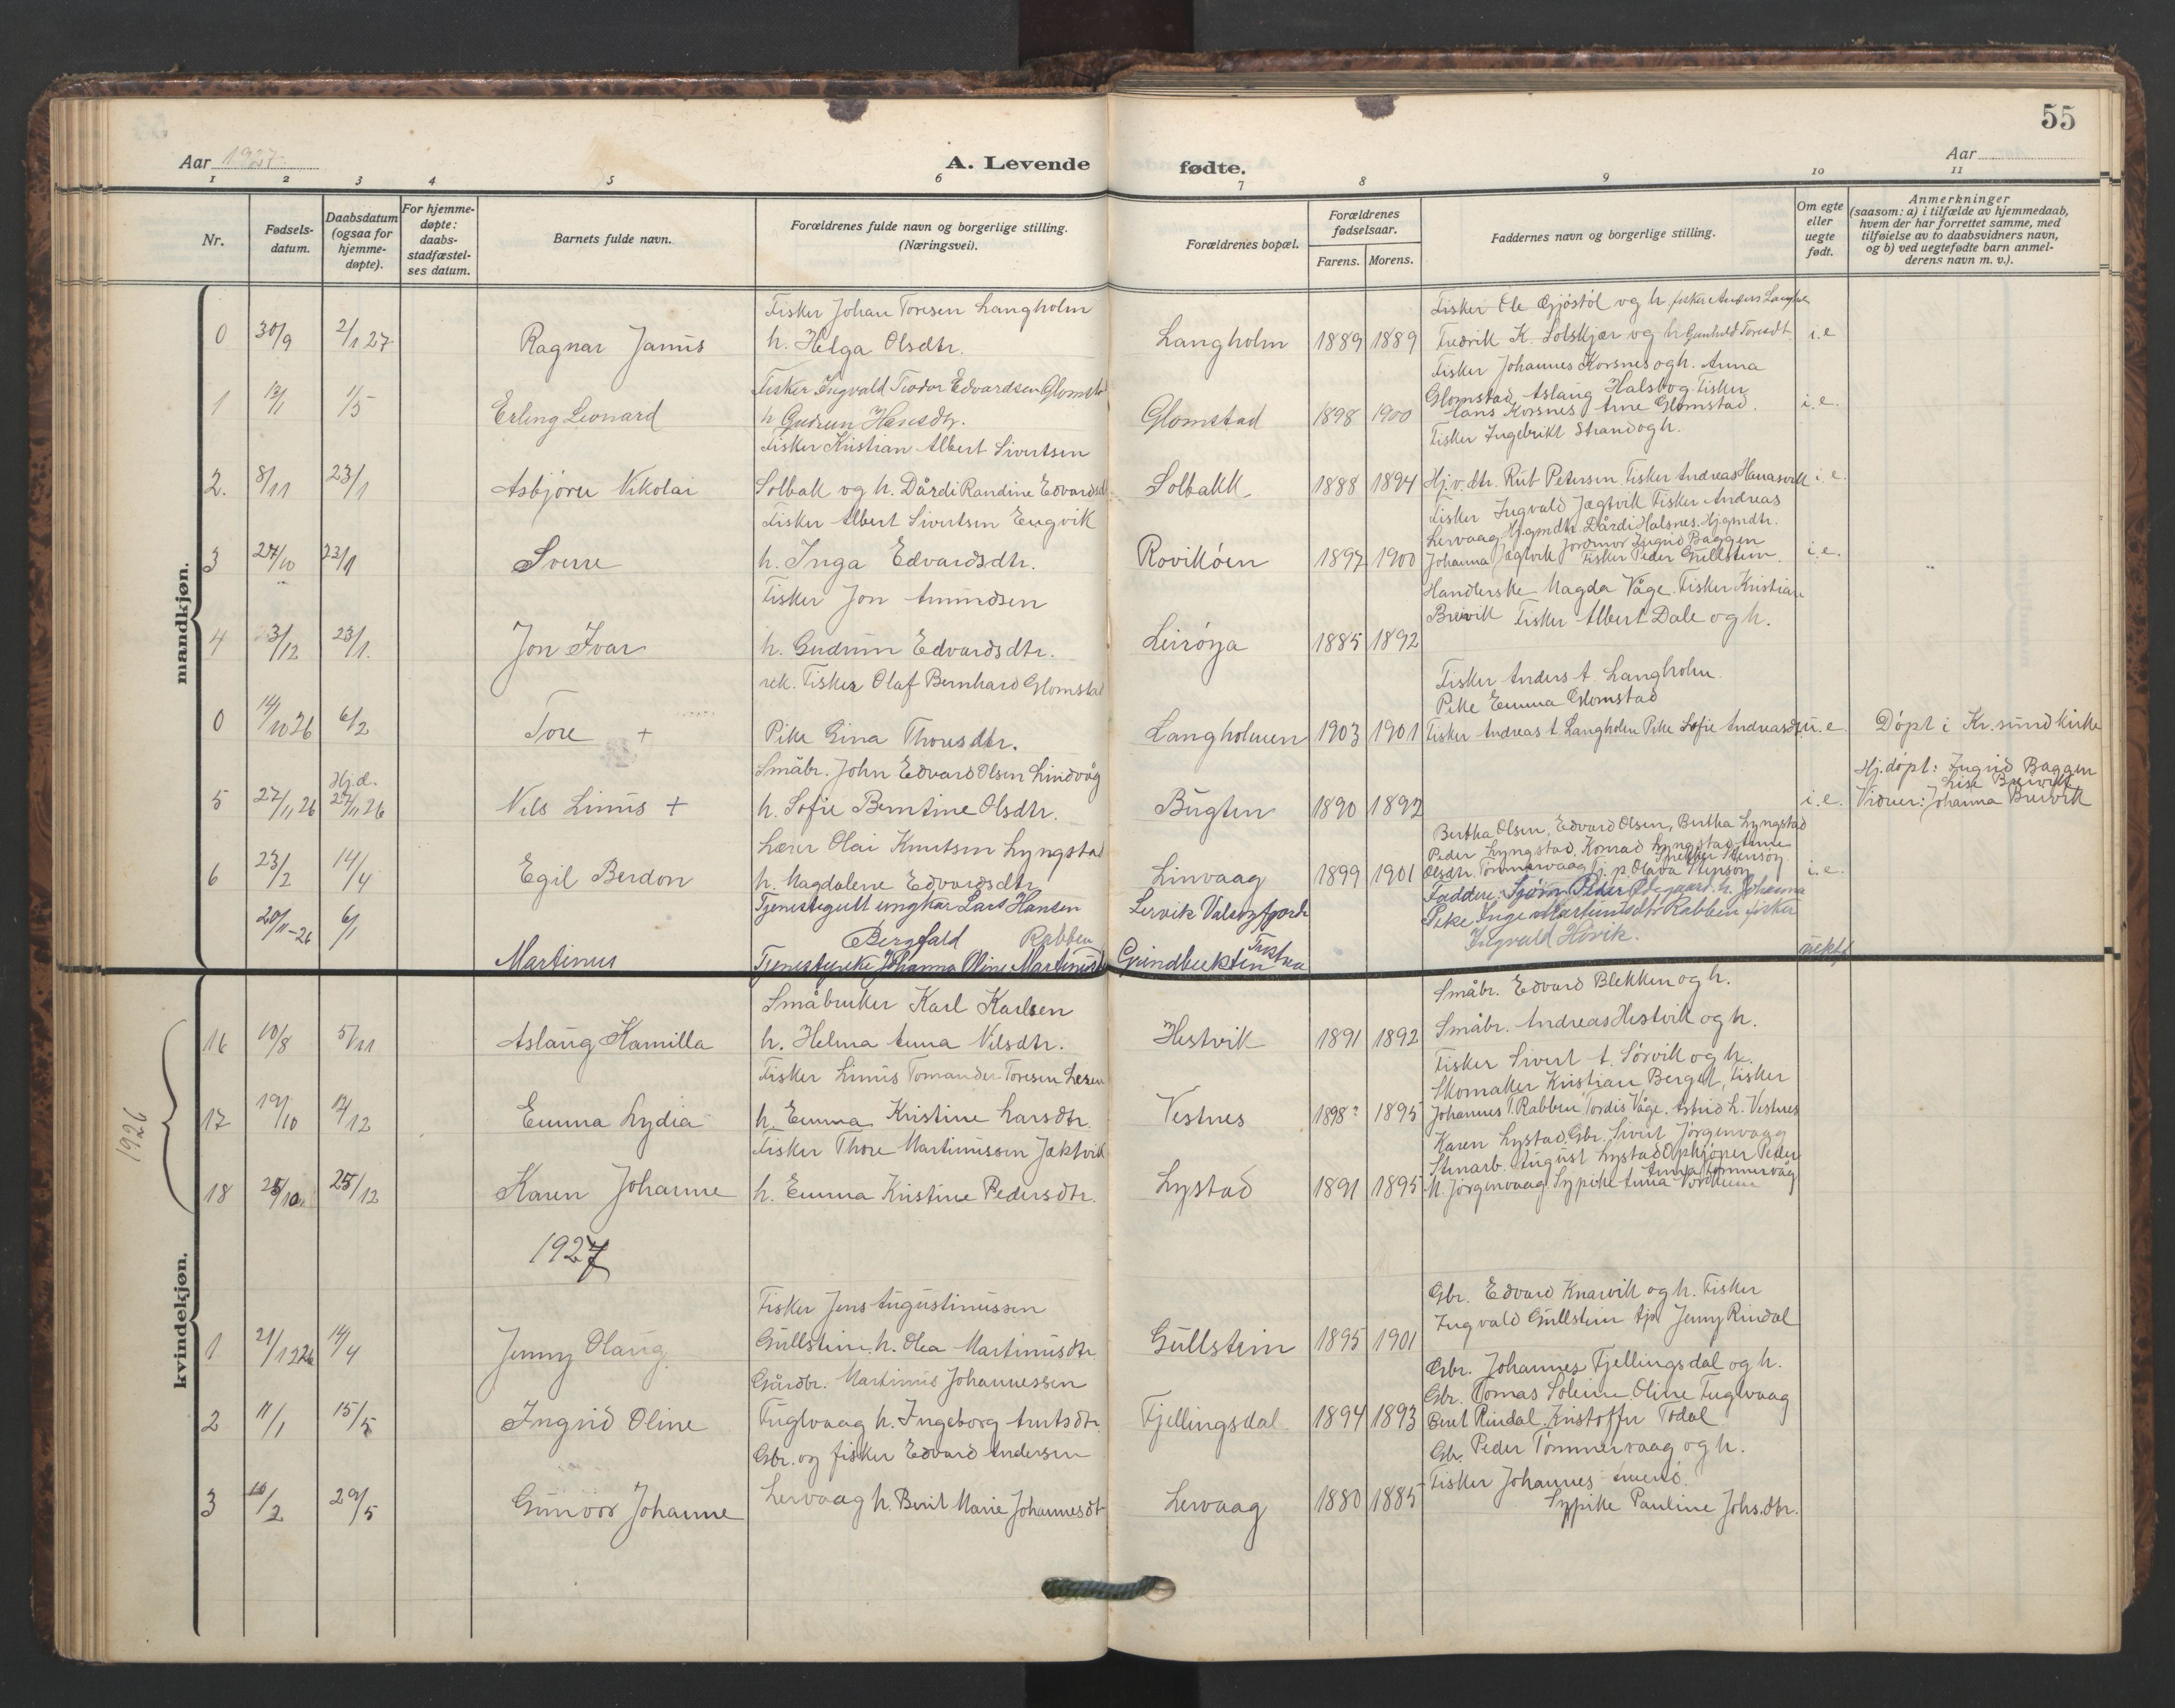 55
Aar 1927.
A. Levende fødte.
Aar
1 2 3 4 5 6 7 8 9 10 11
Nr.
Fødsels-
datum.
Daabsdatum
(ogsaa for
hjemme-
døpte).
For hjemme-
døpte:
daabs-
stadfæstel-
ses datum.
Barnets fulde navn.
Forældrenes fulde navn og borgerlige stilling.
(Næringsvei).
Forældrenes bopæl.
Forældrenes
fødselsaar.
Farens. Morens.
Faddernes navn og borgerlige stilling.
Om egte
eller
uegte
født.
Anmerkninger
(saasom: a) i tilfælde av hjemmedaab,
hvem der har forrettet samme, med
tilføielse av to daabsvidners navn,
og b) ved uegtefødte barn anmel-
derens navn m. v.).
mandkjøn.
Fisker Johan Toresen Langholm
Fisker Ole Gjøstøl og h. fisker Anders
0 30/9 2/1 27 Ragnar Janus h. Helga Olsdtr. Langholm 1889 1889 Fredrik K. Solskjær og h Gunhild Toresdt. i.e
Fisker Johannes Korsnes og h. Anna
Fisker Ingvald Teodor Edvardsen Glomstad
Glomstad, Aslaug Halsbog. Fisker
1 12/1 1/5 Erling Leonard h Gudrun Hansdtr. Glomstad 1898 1900 Hans Korsnes Arne Glomstad. i.e.
Fisker Kristian Albert Sivertsen
Fisker Ingebrikt Strand og h.
2. 8/11 23/1 Asbjørn Nikolai Solbak og h. Dårdi Randine Edvardsd. Solbakk 1888 1894 Hj.v.dtr. Rut Petersen. Fisker Andreas i.e.
Fisker Albert Sivertsen Engvik
Fisker Ingvald Jægtvik Fisker Andreas
Lervaag. Hj.gmdtr. Dårdi Halsnes. Hj.gmdtr.
3 27/10 23/1 Sverre h. Inga Edvardsdtr. Rovikøen 1897 1900 Johanna Jægtvik Jordmor Ingrid Baggen i.e.
Fisker Peder Gullstein.
Fisker Jon Amundsen
Handlerske Magda Våge. Fisker Kristian
Breivik Fisker Albert Dale og h.
4 23/12 23/1. Jon Ivar h. Gudrun Edvardsdtr. Leirøya 1885 1892
rek. Fisker Olaf Bernhard Glomstad
Fisker Anders A. Langholm.
Pike Emma Glomstad
0 14/10 26 6/2 Tore + Pike Gina Thoresdtr. Langholmen 1903 1901 Fisker Andreas A. Langholm Pike Sofie Andreasdt. u.e. Døpt i Kr.sund kirke
Småbr. John Edvard Olsen Lindvåg
Hj.d.
Hj.døpt: Ingrid Baggen
Lise Breivik
5 27/11 26 27/11 26 Nils Linus + h. Sofie Berntine Olsdtr. Bugten 1890 1892 i.e. Vidner: Johanna Breivik
Bertha Olsen, Edvard Olsen, Bertha Lyngstad
Lærer Olai Knutsen Lyngstad
Peder Lyngstad, Konrad Lyngstad, Anne
6 23/2 14/4 Egil Berdon h. Magdalene Edvardsdtr. Linvaag 1899 1901 Olsdtr. Tømmervaag Tj. p. Olava Stenson i.e.
Tjenestegutt ungkar Lars Hansen
Lervik Valsøyfjord
Faddere: Peder Ødegaard. h. Johanna
Pike Inge Martinusdtr Rabben fisker
20/11-26 6/1 Bergfald Rabben
Ingvald Høvik.
Martinus Tjenestpike Johanna Oline Martinusdtr Grindbukten Tustna uekte
1926
kvindekjøn.
Småbruker Karl Karlsen
Småbr. Edvard Blekken og h.
16 10/8 5/11 Aslaug Kamilla h. Helma Anna Nilsdtr. Hestvik 1891 1892 Småbr. Andreas Hestvik og h.
Fisker Linus Tomander Toresen
Fisker Sivert A. Sørvik og h.
Skomaker Kristian Berget, Fisker
17 19/10 12/12 Emma Lydia h. Emma Kristine Larsdtr. Vestnes 1898? 1895 Johannes T. Rabben Tordis Våge. Astrid L. Vestnes
Fisker Thore Martinussen Jaktvik
Karen Lystad. Gbr. Sivert Jørgenvaag
Stenarb. August Lystad Opkjøper Peder
18 25/10 25/12 Karen Johanne h. Emma Kristine Pedersdtr. Lystad 1891 1895 N. Jørgenvaag. Sypike Anna Nordheim
Anna Tømmervåg
1927
Fisker Jens Augustinussen
Gbr. Edvard Knarvik og h. Fisker
Ingvald Gullstein tjp Jenny Rindal
1 21/12 26 14/4 Jenny Olaug. Gullstein. h. Olea Martinusdtr Gullstein 1895 1901
Gårdbr. Martinus Johannessen
Gbr. Johannes Fjellingsdal og h.
Gbr. Tomas Soleim Oline Fuglvaag
2 11/1 15/5 Ingrid Oline Fuglvaag h. Ingeborg Arntsdtr. Fjellingsdal 1894 1893 Berit Rindal. Kristoffer Todal
Gbr. og fisker Edvard Andersen
Gbr. Peder Tømmervaag og h.
Fisker Johannes
3 10/2 29/5 Gunvor Johanne Lervaag h. Berit Marie Johannesdt. Lervaag 1880 1885
Sypike Pauline Johs.dtr.